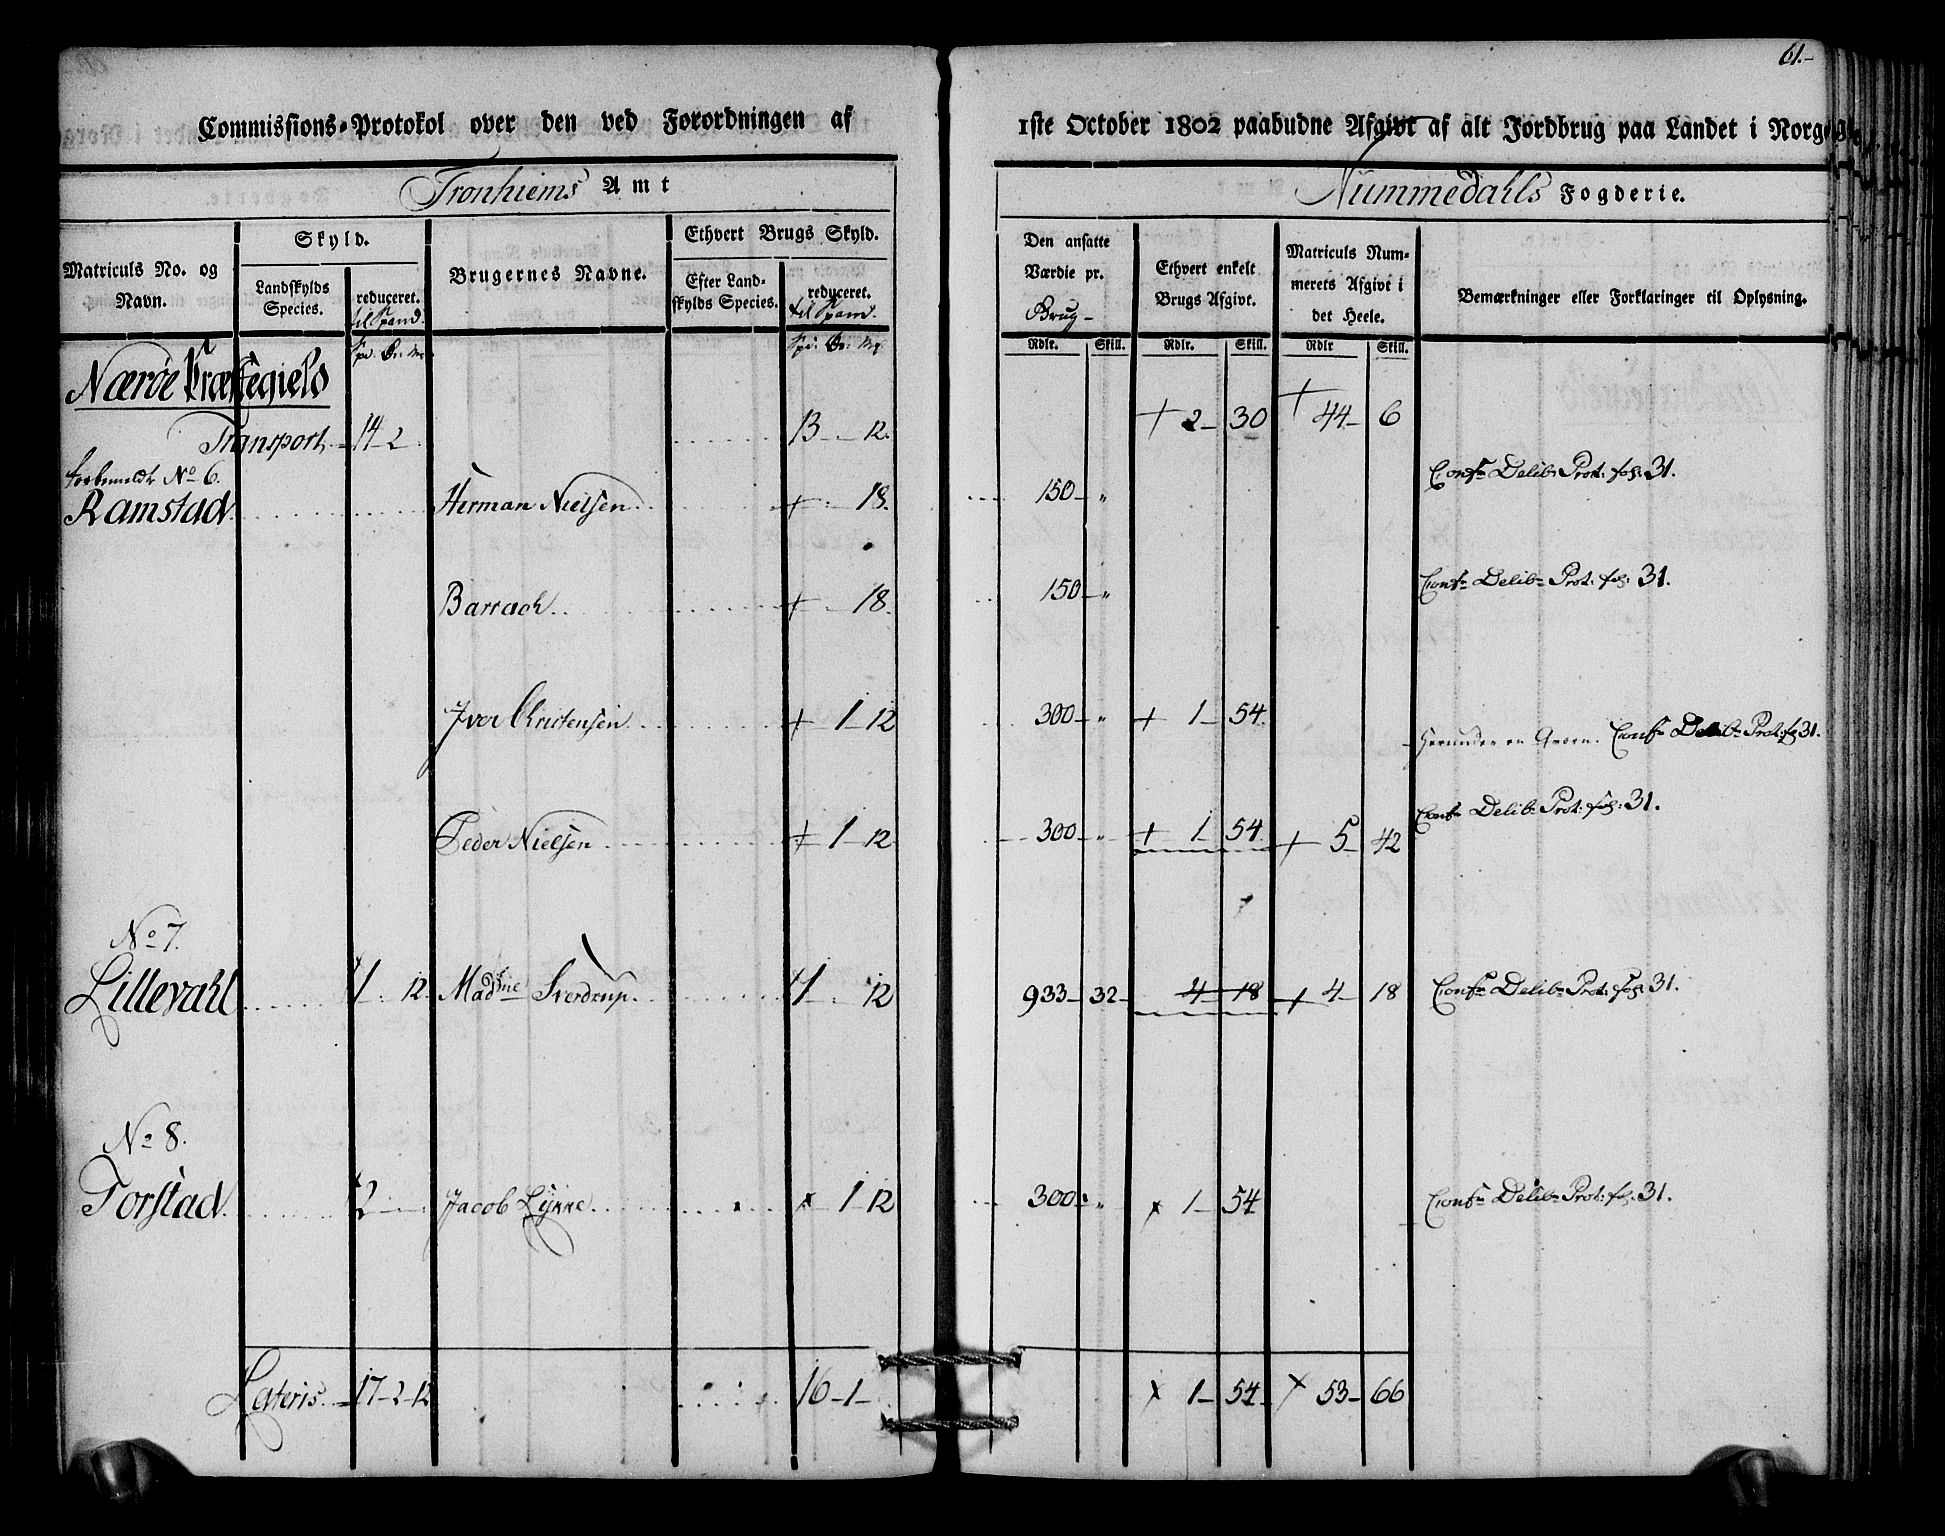 61.–
Commissions-Protokol over den ved Forordningen af 1ste October 1802 paabudne Afgivt af alt Jordbrug paa Landet i Norge
Tronhiems Amt
Nummedahls Fogderie.
Matriculs No. og Navn.
Skyld.
Landskylds Species.
reduceret. til Spand.
Brugernes Navne.
Ethvert Brugs Skyld.
Efter Landskylds Species.
reduceret. til Spand.
Den ansatte Værdie pr. Brug –
Ethvert enkelt Brugs Afgivt.
Matriculs Nummerets Afgivt i det Heele.
Bemærkninger eller Forklaringer til Oplysning.
Rdlr. Skill. Rdlr. Skill. Rdlr Skill.
Nærøe Præstegield
Transport 14 – 2 13 – 12. + 2 – 30 + 44 – 6
No 6.
Ramstad Herman Nielsen + 18. 150 – „ Confr Delibr Prot: fol: 31.
Barrach + 18. 150 – „ Confr Delibr Prot: fol: 31.
Iver Christensen + 1 – 12 300 – „ + 1 – 54. Herunder en Qværn. Confr Delibr Prot: fol 31.
Peder Nielsen + 1 – 12 300 – „ + 1 54 + 5 – 42 Confr Delibr Prot: fol: 31.
No 7.
Lillevahl 1 12. Madme Sverdrup. 1 12 933 – 32 – 4 – 18 + 4 – 18 Confr Delibr Prot: fol: 31.
No 8.
Torstad 2 Jacob Lykke x 1 – 12 300 „ x 1 – 54 Confr Delibr Prot: fol: 31.
Lateris. 17 – 2 – 12 16 – 1 – x 1 – 54 x 53 – 66